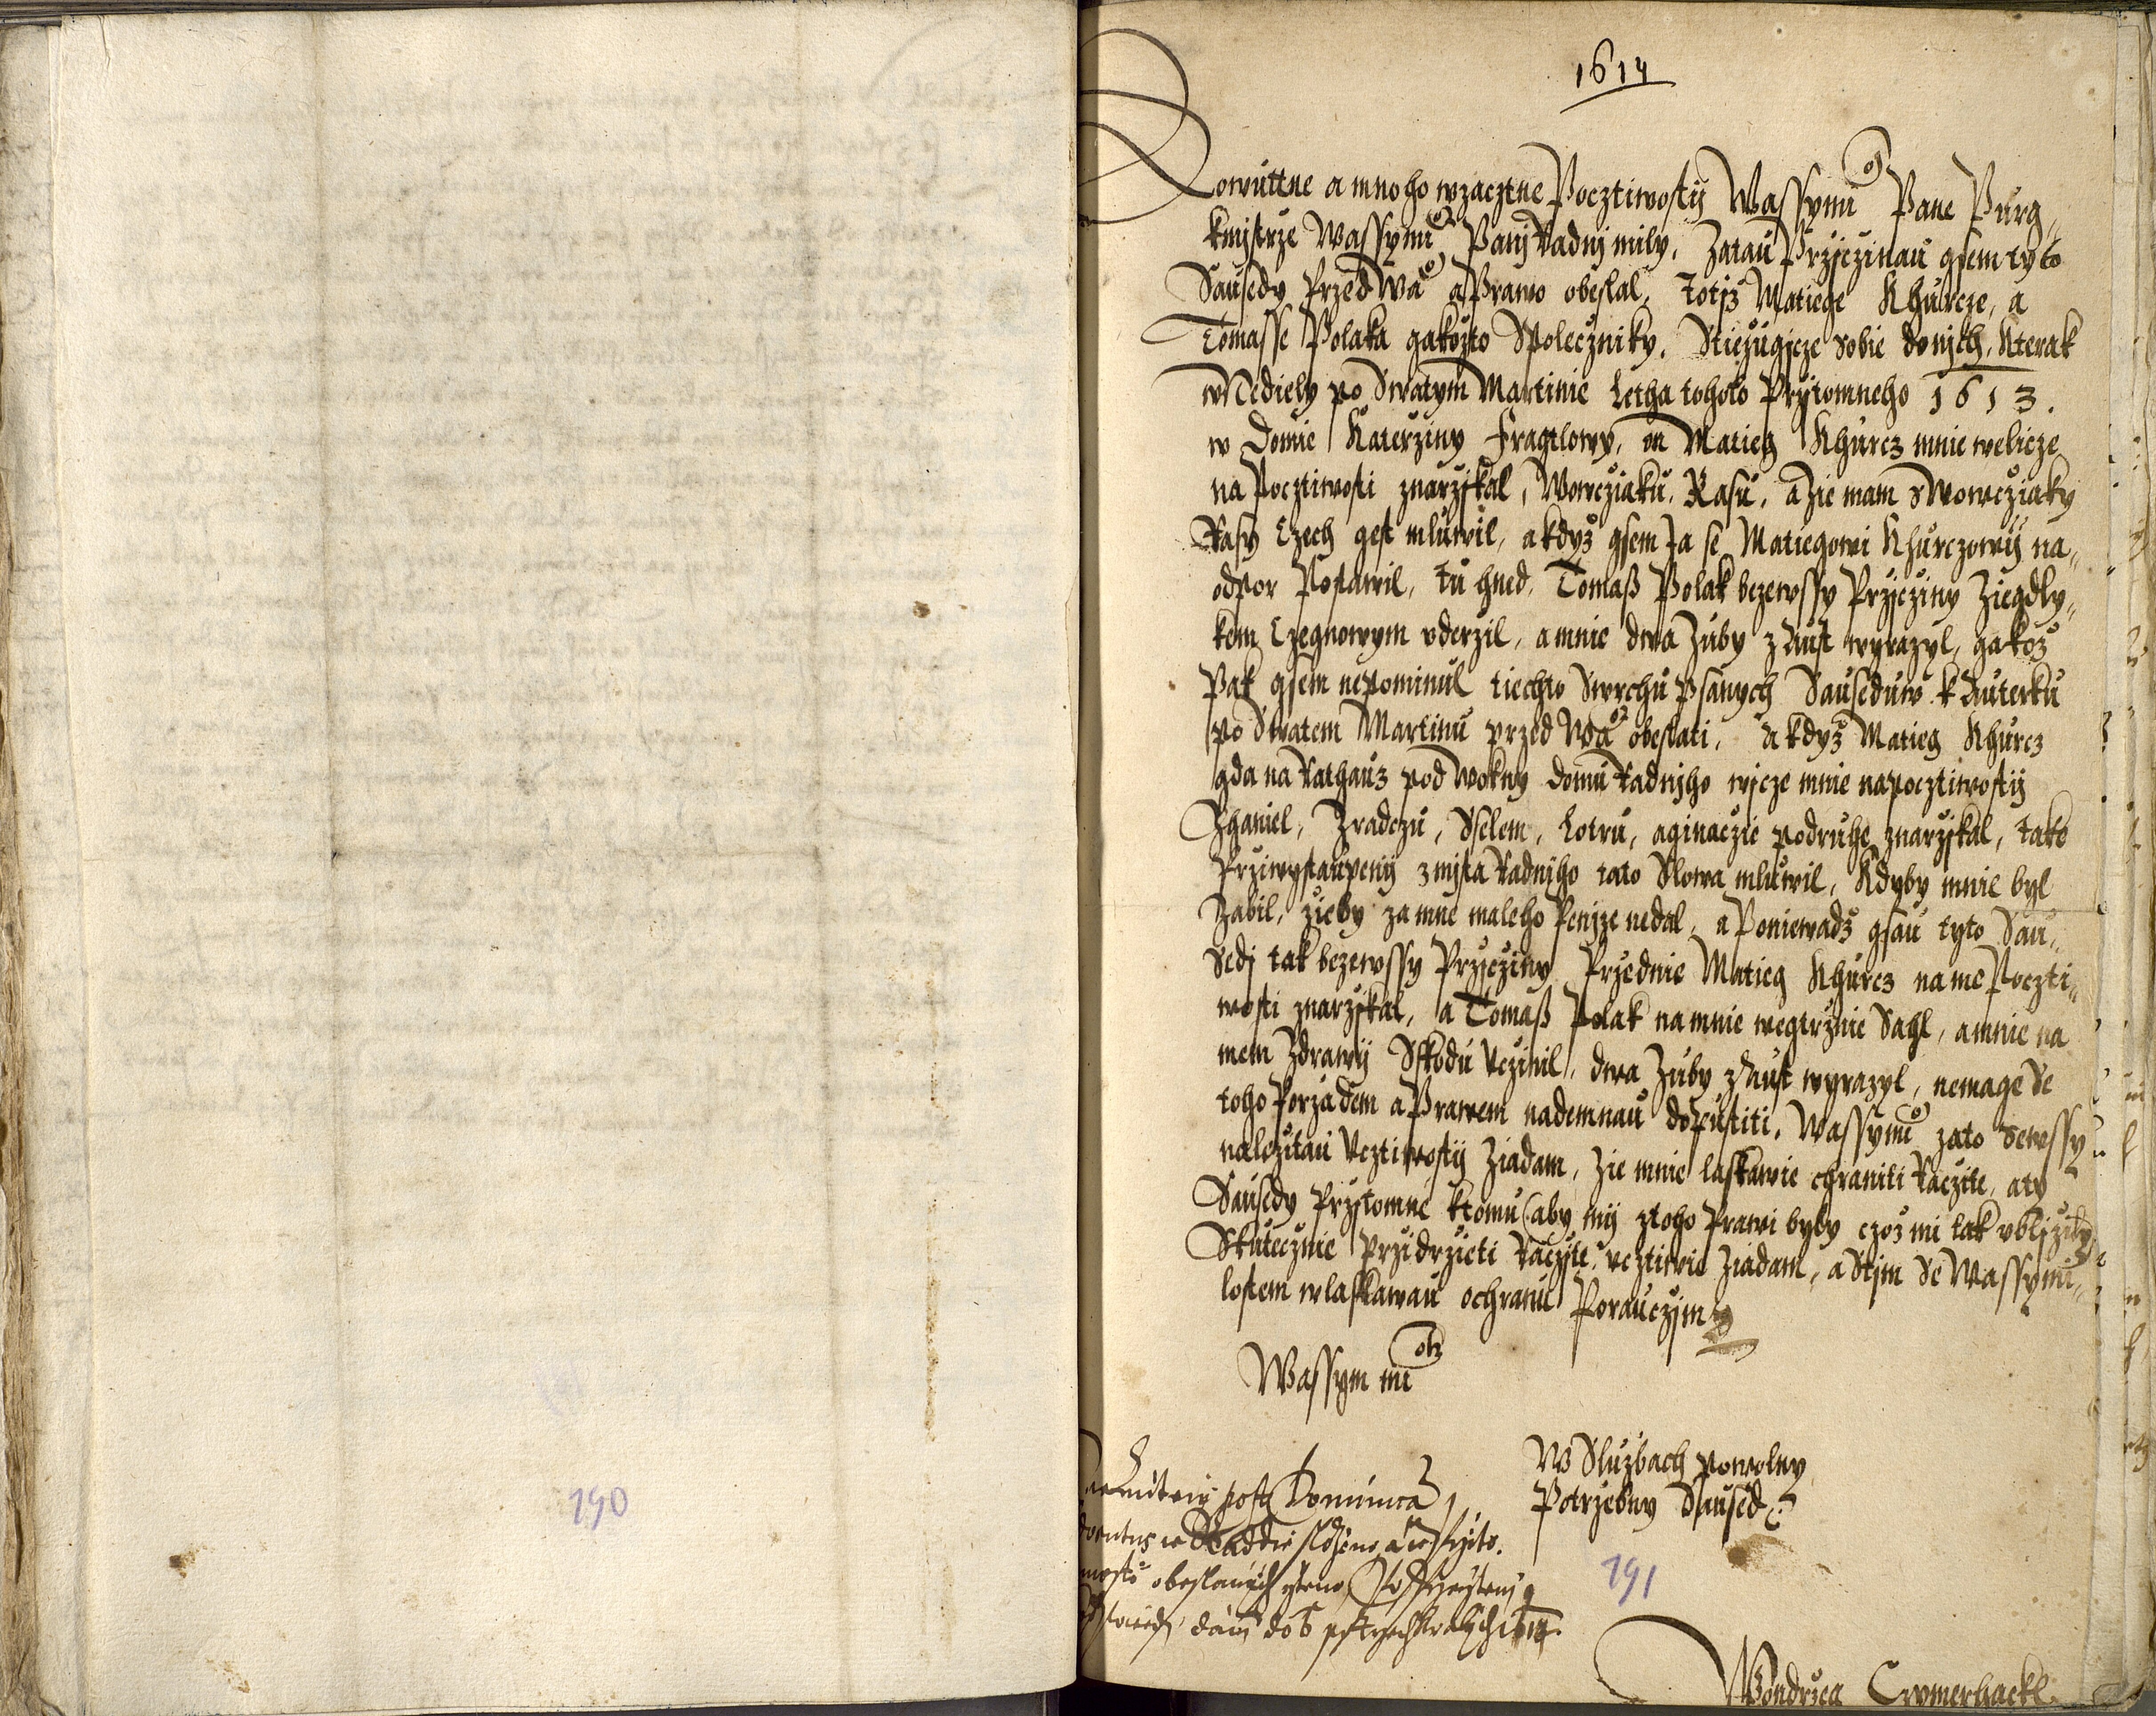 1614
Slowuttne a mnoho wzacztne Pocztiwostij Wassymu Pane Purg„
kmistrze Wassymu Panij Radnij mily. Zatau Przicżinau gsem tyto
Sausedy Przed Wa a Prawo obeslal, Totiż Matiege Khurcze, a
Tomasse Polaka gakożto Spolecżniky. Stieżugicze Sobie do nijch, Kterak
w Nediely po Swatym Martinie Letha tohoto Pržitomneho 1613.
w Domie Katerziny Fragtlowy, on Matieg Khurcz mnie welicze
na Pocztiwosti znarżikal, Wowcżiaku, Rasu, a żie mam s Wowcżiaky
Rasy Czech gest mluwil, a kdyż gsem Ja se Matiegowi Khurczowij na„
odpor Postawil, tu hned, Tomaß Polak bezewssy Pržicżiny Żiegdly„
kem Czegnowym vderzil, a mnie dwa Zuby z Aust wyrazyl, gakoż
Pak gsem nepominul tiechto Swrchu Psanych Sauseduw k Auterku
po Swatem Martinu przed Wa obeslati, a kdyż Matieg Khurcz
gda na Rathauz pod Wokny domu Radnijho wicze mnie na pocztiwostij
Zhaniel, Zradczu, Sselem, Lotru, a ginaczie podruhe znaržikal, take
Przi wystaupenij z mista Radnijho tato Slowa mluwil, Kdyby mnie byl
Zabil, żieby za mne maleho Penize nedal, a Poniewadż gsau tyto Sau„
Sedi tak bezewssy Pržicżiny Przednie Matieg Khurcz na me Poczti„
wosti znarżikal, a Tomaß Polak na mnie wegtrżnie Sahl, a mnie na
mem Zdrawij Sskodu Vczinil, dwa Zuby z Aust wyrazyl, nemage Se
toho Porżadem a Prawem nademnau dopustiti. Wassymu zato Sewssy
należitau Vcztiwostij Żiadam, Żie mnie laskawie chraniti Racżite, a ty
Sausedy Pržitomne k tomu (aby mij z toho Prawi byly czoż mi tak vbliżily
Skutecżnie Przidrżieti Racżite, vcztiwie Żiadam, a Stim Se Wassymi„
lostem w laskawau ochranu Porauczim
Wassym mi ostem
W Sluzbach powolny
Potrzebny Saused
post Dominica
w Raddie
obeslanych
dani do
190
191
Wondrzea Crymerhackl